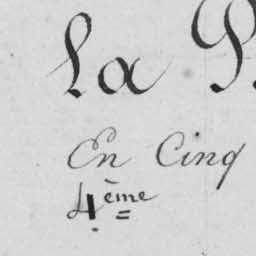 La
En Cinq
4ème